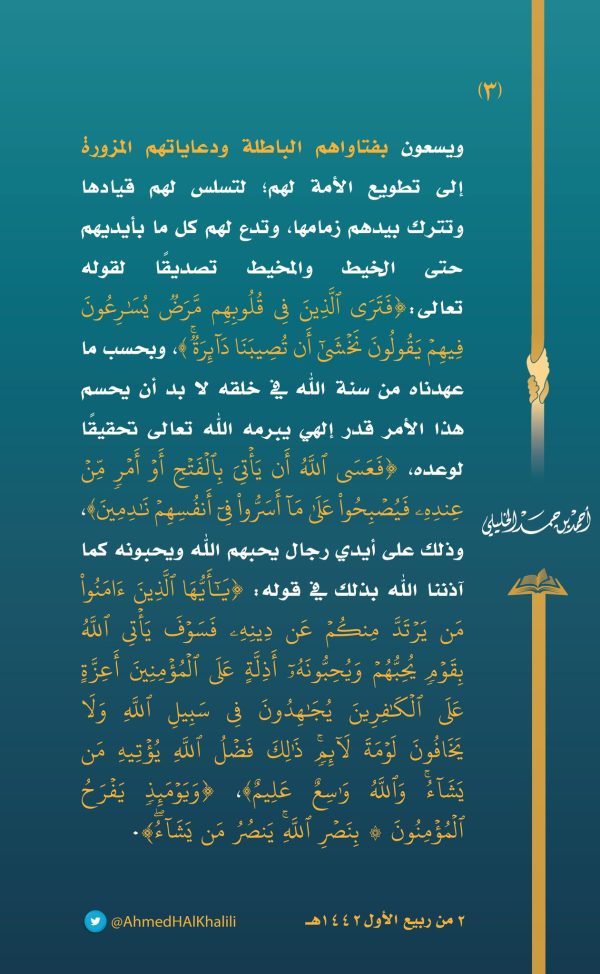 (٣)
ويسعون بفتاواهم الباطلة ودعاياتهم المزورة
إلى تطويع الأمة لهم؛ لتسلس لهم قيادها
وتترك بيدهم زمامها، وتدع لهم كل ما بأيديهم
حتى الخيط والمخيط تصديقًا لقوله
تعالى: ﴿فَتَرَى ٱلَّذِينَ فِى قُلُوبِهِم مَّرَضٌ يُسَٰرِعُونَ
فِيهِمْ يَقُولُونَ نَخْشَىٰٓ أَن تُصِيبَنَا دَآئِرَةٌۚ﴾، وبحسب ما
عهدناه من سنة الله في خلقه لا بد أن يحسم
هذا الأمر قدر إلهي يبرمه الله تعالى تحقيقًا
لوعده، ﴿فَعَسَى ٱللَّهُ أَن يَأْتِىَ بِٱلْفَتْحِ أَوْ أَمْرٍ مِّنْ
عِندِهِۦ فَيُصْبِحُوا۟ عَلَىٰ مَآ أَسَرُّوا۟ فِىٓ أَنفُسِهِمْ نَٰدِمِينَ﴾،
وذلك على أيدي رجال يحبهم الله ويحبونه كما
آذننا الله بذلك في قوله: ﴿يَٰٓأَيُّهَا ٱلَّذِينَ ءَامَنُوا۟
مَن يَرْتَدَّ مِنكُمْ عَن دِينِهِۦ فَسَوْفَ يَأْتِى ٱللَّهُ
بِقَوْمٍ يُحِبُّهُمْ وَيُحِبُّونَهُۥٓ أَذِلَّةٍ عَلَى ٱلْمُؤْمِنِينَ أَعِزَّةٍ
عَلَى ٱلْكَٰفِرِينَ يُجَٰهِدُونَ فِى سَبِيلِ ٱللَّهِ وَلَا
يَخَافُونَ لَوْمَةَ لَآئِمٍۚ ذَٰلِكَ فَضْلُ ٱللَّهِ يُؤْتِيهِ مَن
يَشَآءُۚ وَٱللَّهُ وَٰسِعٌ عَلِيمٌ﴾، ﴿وَيَوْمَئِذٍ يَفْرَحُ
ٱلْمُؤْمِنُونَ * بِنَصْرِ ٱللَّهِۚ يَنصُرُ مَن يَشَآءُۖ﴾.
أحمد بن حمد الخليلي
٢ من ربيع الأول ١٤٤٢هـ
@AhmedHAlKhalili